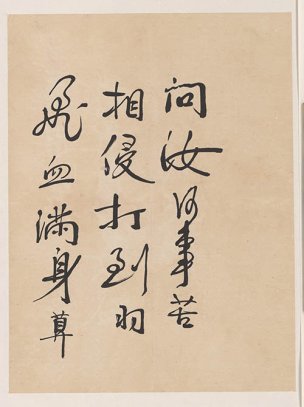 問汝何事苦
相侵打到羽
飛血滿身